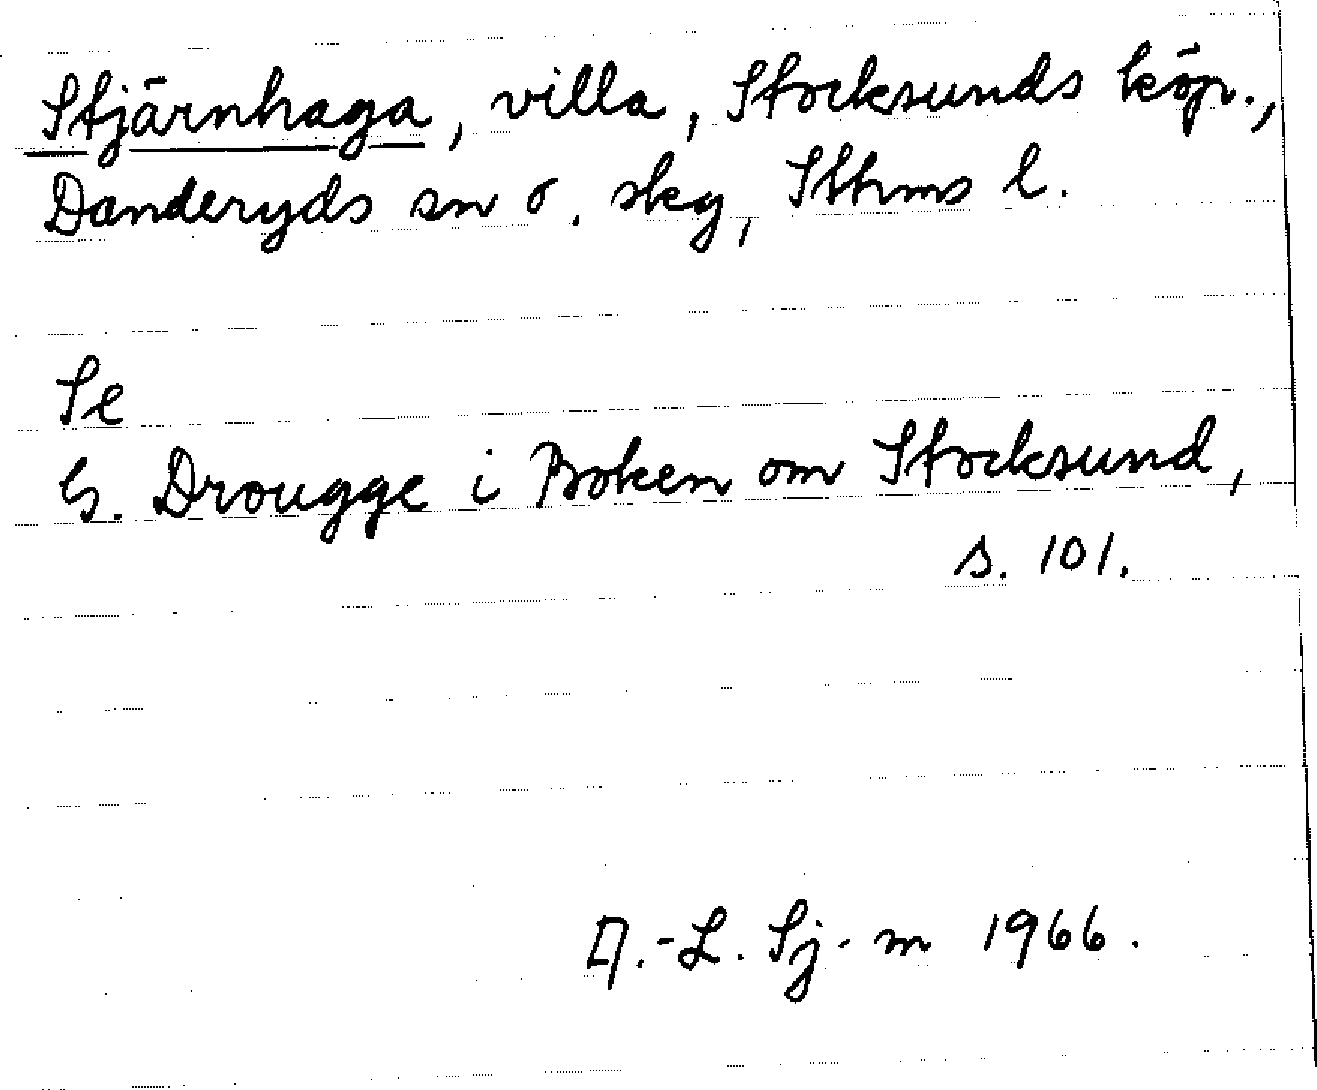 Stjärnhaga, villa, Stocksunds köp.,
Danderyds sn o. skg, Sthms l.
Se
G. Drougge i Boken om Stocksund,
s. 101.
A.-L. Sj-m 1966.